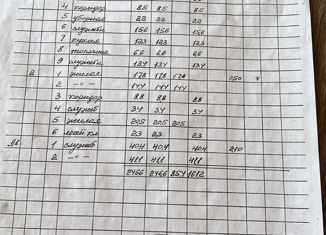 4 коридор 85 85 85
5 уборная 22 22 22
6 служебн 156 156 156
7 кухня 123 123 123
8 топочная 66 66 66
9 служебн 134 134 134
2 1 жилая 178 178 178 250
2 -"- 144 144 144
3 коридор 88 88 88
4 служеб 34 34 34
5 жилая 205 205 205
6 23 23 23
1 служеб 404 404 404 210
2 -"- 411 411 411
2466 2466 854 1612